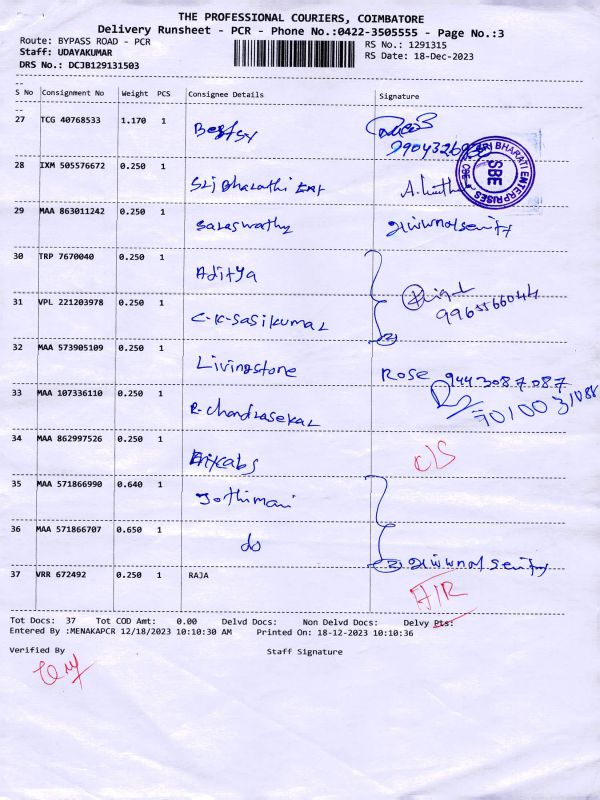 THE PROFESSIONAL COURIERS, COIMBATORE
Delivery Runsheet - PCR - Phone No.:0422-3505555 - Page No.:3
Route: BYPASS ROAD - PCR
RS No.: 1291315
Staff: UDAYAKUMAR
RS Date: 18-Dec-2023
DRS No.: DCJB129131503
S No Consignment No Weight PCS Consignee Details Signature
27 TCG 40768533 1.170 1
28 IXM 505576672 0.250 1 Sri Bharathi Ent
SRI BHARATI ENTERPRISES SBE CBE
29 MAA 863011242 0.250 1 Saraswathy
30 TRP 7670040 0.250 1 Aditya
9965566044
31 VPL 221203978 0.250 1 C-K-Sasikumar
2
32 MAA 573905109 0.250 1 Livingstone Rose 944 308 7.087
33 MAA 107336110 0.250 1 R-Chandrasekar
34 MAA 862997526 0.250 1 C/S
35 MAA 571866990 0.640 1 Jothimani
36 MAA 571866707 0.650 1 do
2
37 VRR 672492 0.250 1 RAJA
Tot Docs: 37 Tot COD Amt: 0.00 Delvd Docs: Non Delvd Docs: Delvy Pts:
Entered By :MENAKAPCR 12/18/2023 10:10:30 AM Printed On: 18-12-2023 10:10:36
Verified By Staff Signature